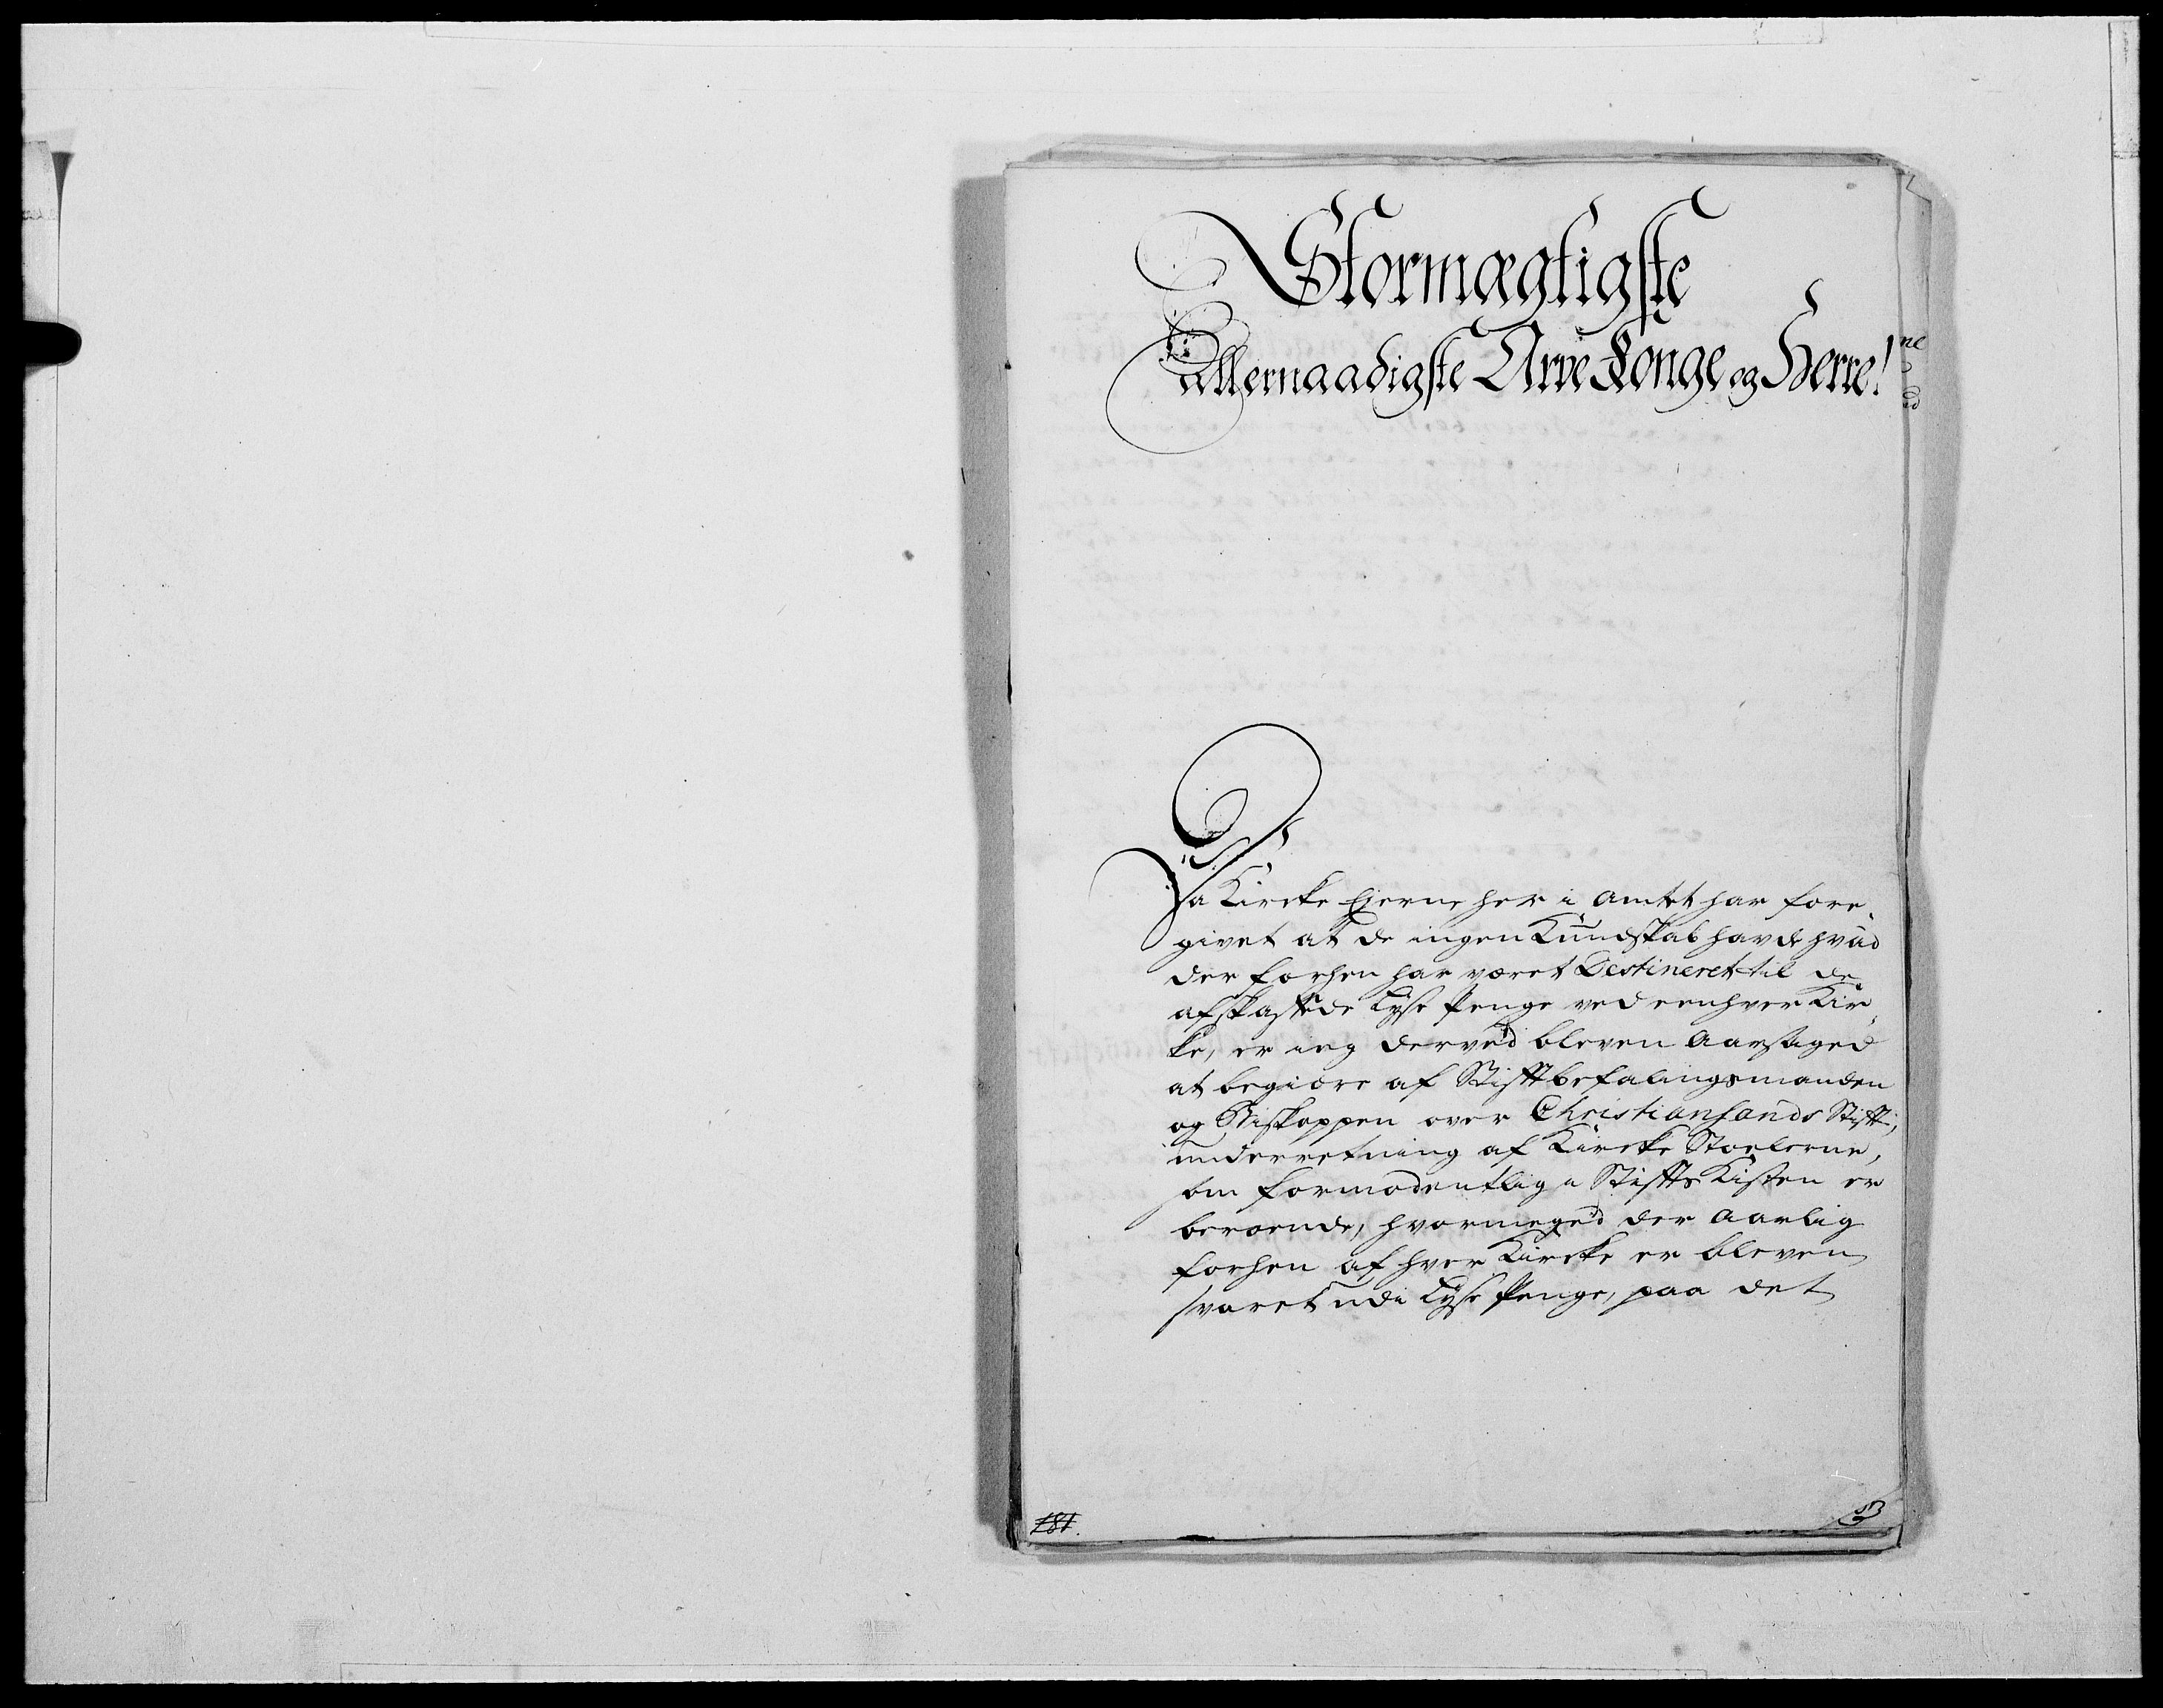 Stormægtigste
Allernaadigste Arve Konge og Herre!
Da Kircke Ejerne her i Amtet har fore¬
givet at de ingen Kundskab havde hvad
der forhen har været Destineret til de
afskaffede Lyse Penge ved eenhver Kir¬
ke, er ieg derved bleven Aarsaged
at begiære af Stiftbefalingsmanden
og Biskoppen over Christiansands Stift,
underretning af Kircke Stoelerne,
som formodentlig i Stifts Kisten er
beroende, hvormeged der Aarlig
forhen af hver Kircke er bleven
svaret udi Lyse Penge, paa det
181.